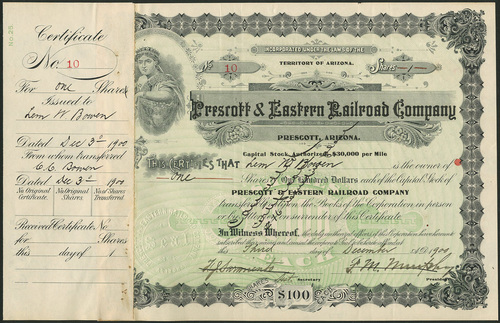 No 25
Certificate
No. 10
For one Shares
Issued to
Lem W Bowen
Dated Dec 3d 1900
From whom transferred
C. C. Bowen
Dated Dec 3d 1900
No Original Certificate.
No Original Shares
No of Shares Transferred
Received Certificate No.
for Shares
this day of 1
INCORPORATED UNDER THE LAWS OF THE
TERRITORY OF ARIZONA.
No 10
Shares 1
Prescott & Eastern Railroad Company
PRESCOTT, ARIZONA.
Capital Stock Authorized $30,000 per Mile
THIS CERTIFIES THAT Lem W Bowen is the owner of
one Shares
of One Hundred Dollars each of the Capital Stock of
PRESCOTT & EASTERN RAILROAD COMPANY
transferable only upon the Books of the Corporation in person
or by Attorney on surrender of this Certificate.
In Witness Whereof,
this Third day of December 1900
Secretary
F. M. Murphy
President
SHARES $100 EACH